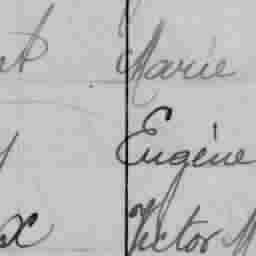 Marie
Eugène
Victor M